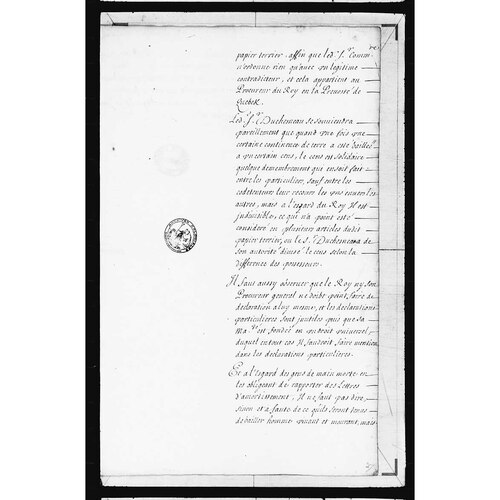 papier terrier affin que led. Sr. Comm.re
n'ordonne rien qu'avec un legitime
contradicteur, et cela appartient au
Procureur du Roy en la Prevosté de
Quebek.
Led. Sr. Duchesneau se souviendra
pareillement que quand une fois une
certaine continence de terre a esté baillée
a un certain cens, le cens est solidaire
quelque demembrement qui en soit fait
entre les particuliers, sauf entre les
codetenteurs leur recours les uns envers les
autres, mais a l'egard du Roy Il est
indivisible, ce qui n'a point esté
consideré en plusieurs articles dudit
papier terrier, ou le S. Duchesneau de
son autorité divise le cens selon la
difference des possesseurs.
Il faut aussy observer que le Roy ny son
Procureur general ne doibt point faire de
declaration a luy mesme, et les declarations
particulieres sont inutiles puis que sa
Ma.té est fondée en un droit universel,
duquel en tout cas Il faudroit faire mention
dans les declarations particulieres.
Et a l'egard des gens de main morte en
les obligeant de rapporter des Lettres
d'amortissement, Il ne faut pas dire,
sinon et a faute de ce qu'ils seront tenus
de bailler homme vivant et mourant, mais